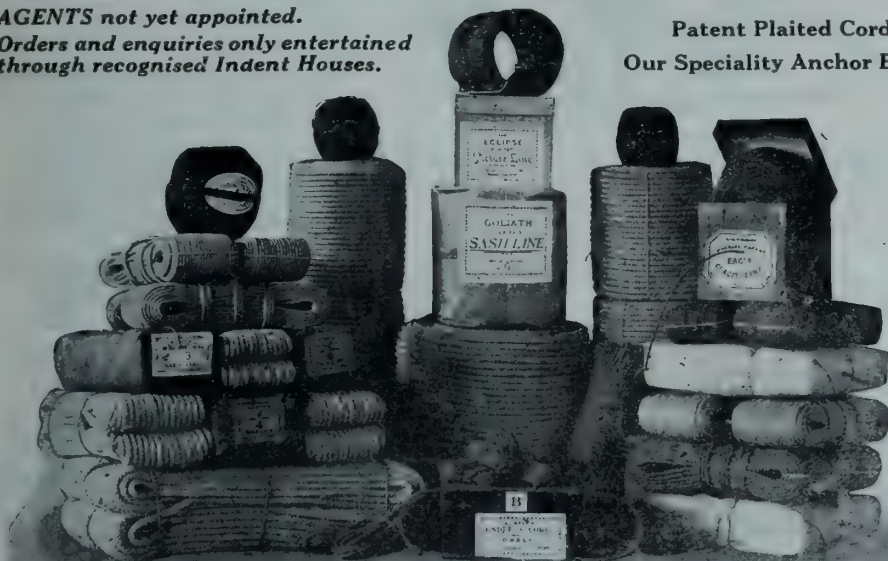 AGENTS not yet appointed.
Orders and enquiries only entertained
through recognised Indent Houses.
Patent Plaited Cord
Our Speciality Anchor B
ECLIPSE
Picture Line
GOLIATH
SASH LINE
6
3
B